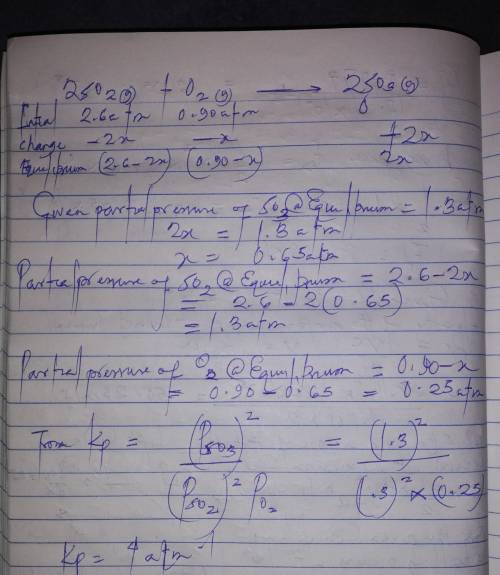 2SO2(g) + O2(g) → 2SO3(g)
Initial 2.6atm 0.90atm 0
change -2x -x +2x
Equilibrium (2.6-2x) (0.90-x) 2x
Given partial pressure of SO3 @ Equilibrium = 1.3atm
2x = 1.3atm
x = 0.65atm
Partial pressure of SO2 @ Equilibrium = 2.6-2x
= 2.6 - 2(0.65)
= 1.3atm
Partial pressure of O2 @ Equilibrium = 0.90-x
= 0.90-0.65 = 0.25atm
From Kp = (PSO3)² = (1.3)²
(PSO2)² PO2 (1.3)² × (0.25)
Kp = 4atm⁻¹